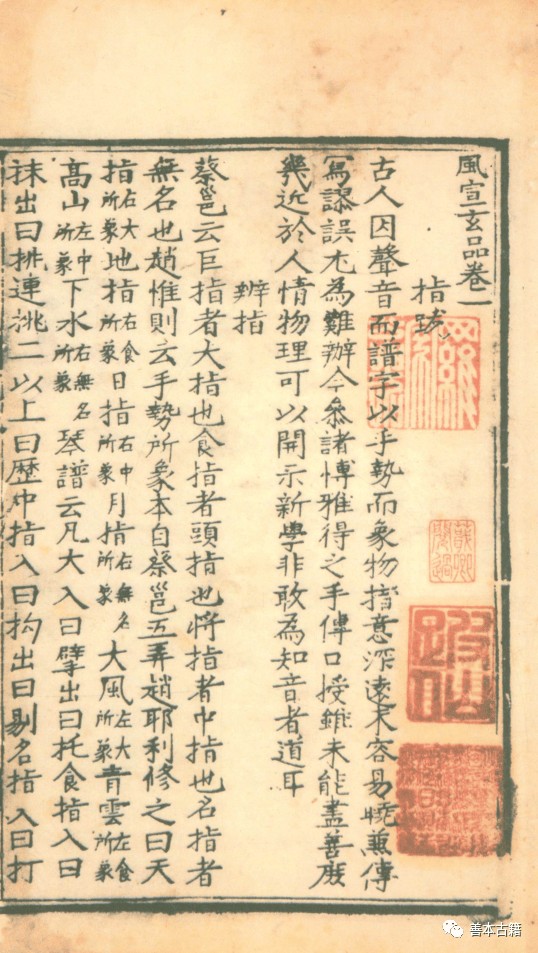 風宣玄品卷一
指跋
古人因聲音而譜字以手勢而象物指意深遠未容易曉兼傳
寫謬誤尤為難辦今叅諸博雅得之手傳口授雖未能盡善庶
幾近於人情物理可以開示新學非敢為知音者道耳
辨指
蔡邕云巨指者大指也食指者頭指也將指者中指也名指者
無名也趙惟則云手勢所象本自蔡邕五弄趙耶利修之曰天
指右大所象地指右食所象日指右中所象月指右無名所象大風左大所象青雲左食所象
高山左中所象下水右無名所象琴譜云凡大入曰擘出曰托食指入曰
抹出曰挑連挑二以上曰歷中指入曰抅出曰剔名指入曰打
善本古籍